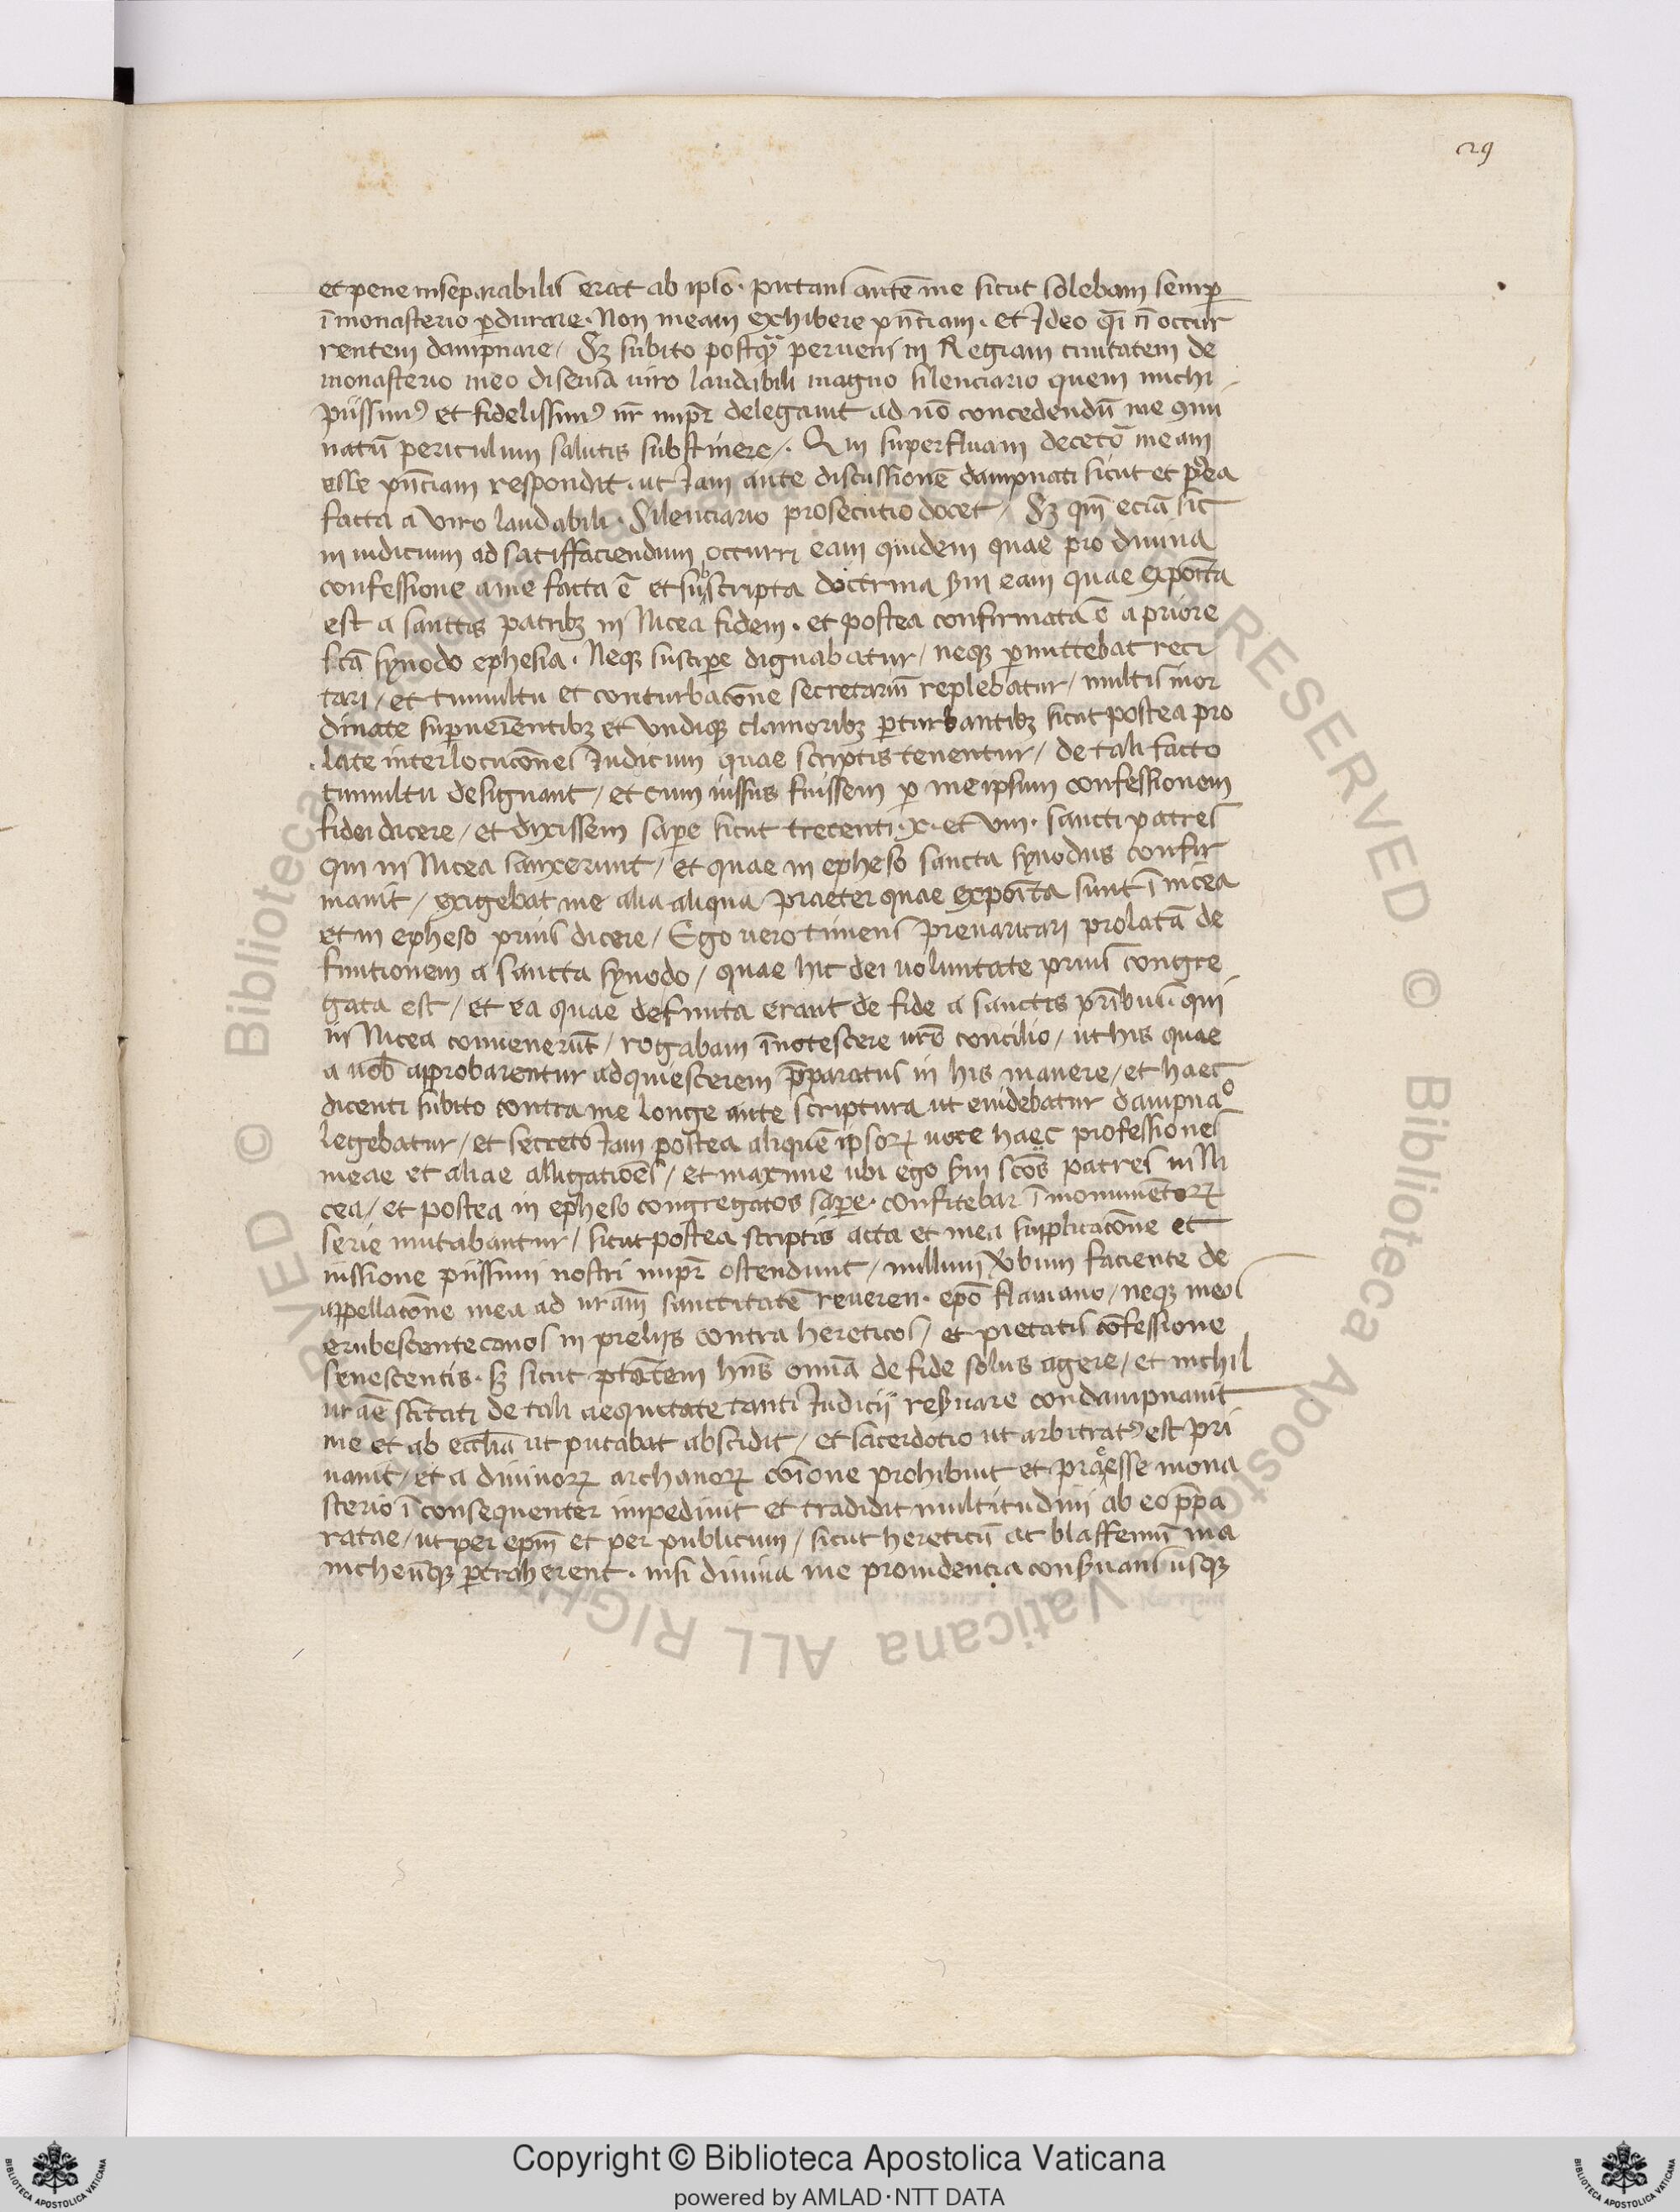 29
et pene inseparabilis erat ab ipso. putans autē me sicut solebam semꝑ
ī monasterio ꝑdurare. Non meam exhibere pn̄ciam. et Ideo q̄i n̄ occur
rentem dampnare / Sꝫ subito postqᷓ perueni in Regiam ciuitatem de
monasterio meo disensā uiro laudabili magno silenciario quem michi
piissimꝰ et fidelissimꝰ nr̄ impr̄ delegauit ad nō concedendū me
natū periculum salutis substinere /. Qui superfluam decetō meam
esse pn̄ciam respondit. ut Iam ante discussionē dampnati sicut et ꝑea
facta a viro laudabili. Silenciario prosecutio docet / Sꝫ qm̄ eciā sic
in iudicium ad satiffaciendum occurri eam quidem quae pro diuina
confessione a me facta ē et subscripta doctrina ẜm eam quae exposita
est a sanctis patribꝫ in Nicea fidem. et postea confirmata ē a priore
sc̄a synodo ephesia. Neqꝫ suscipe dignabatur / neqꝫ ꝑmittebat reci
tari / et tumultu et conturbacōne secretariū replebatur / multis inor
dinate suꝑuenientibꝫ et vndiqꝫ clamoribꝫ ꝑturbantibꝫ sicut postea pro
late interlocucōnes Iudicum quae scriptis tenentur / de tali facto
tumultu designant / et cum iussus fuissem ꝑ me ipsum confessionem
fidei dicere / et dixissem saꝑe sicut trecenti. x. et viii. sancti patres
qui in Nicea sanxerunt / et quae in epheso sancta synodus confir
mauit / exigebat me alia aliqua praeter quae exposita sunt ī nicea
et in epheso prius dicere / Ego uero timens preuaricari prolatā de
finitionem a sancta synodo / quae hic dei uoluntate prius congre
gata est / et ea quae definita erant de fide a sanctis pr̄ibus qui
in Nicea conuenerūt / rogabam īnotescere uro concilio / ut his quae
a uob̄ approbarentur adquiescerem p̄paratus in his manere / et haec
dicenti subito contra me longe ante scriptura ut euidebatur dampnaō
legebatur / et secreto Iam postea aliquē ipsoꝝ uoce haec professiones
meae et aliae alligationēs / et maxime ubi ego ẜm sc̄os patres in Ni
cea / et postea in epheso congregatos saꝑe. confitebar ī monumētoꝝ
serie mutabantur / sicut postea scriptis acta et mea supplicacōne et
iussione piissimi nostri impr̄ ostendunt / nullum v̄bum faciente de
appellacōne mea ad uram̄ sanctitatē reueren. epō flauiano / neqꝫ meos
erubescente canos in preliis contra hereticos / et pietatis cōfessione
senescentis. sꝫ sicut ptātem hn̄s omīa de fide solus agere / et nichil
urae sc̄itati de tali aequitate tanti Iudicii resꝑuare condampnauit
me et ab ecclīa ut putabat abscidit / et sacerdotio ut arbitratꝰ est pri
uauit / et a diuinoꝝ archanoꝝ cōione prohibuit et praeesse mona
sterio ī consequenter impediuit et tradidit multitudini ab eo p̄pa
ratae / ut per epm̄ et per publicum / sicut hereticū ac blaffemū ma
nicheūqꝫ ꝑtraherent. nisi diuina me prouidencia conẜuans usqꝫ